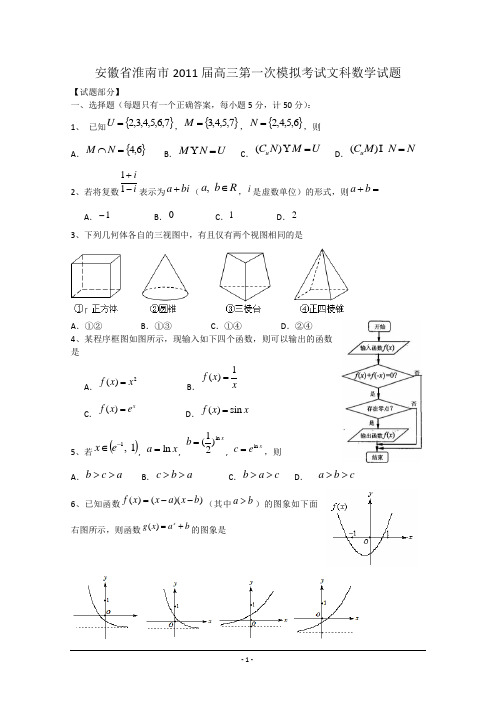 安徽省淮南市2011届高三第一次模拟考试文科数学试题
【试题部分】
一、选择题（每题只有一个正确答案，每小题5分，计50分）：
1、 已知U={2,3,4,5,6,7}，M={3,4,5,7}，N={2,4,5,6}，则
A．M∩N={4,6} B．MΥN=U C．(CuN)ΥM=U D．(CuM)I N=N
2、若将复数(1+i)/(1-i)表示为a+bi（a, b∈R，i是虚数单位）的形式，则a+b=
A．-1 B．0 C．1 D．2
3、下列几何体各自的三视图中，有且仅有两个视图相同的是
①r 正方体 ②圆锥 ③三棱台 ④正四棱锥
A．①② B．①③ C．①④ D．②④
4、某程序框图如图所示，现输入如下四个函数，则可以输出的函数
是
A．f(x)=x² B．f(x)=1/x
C．f(x)=eˣ D．f(x)=sin x
开始
输入函数f(x)
f(x)+f(-x)=0?
否
是
存在零点?
否
是
输出函数f(x)
结束
5、若x∈(e⁻¹, 1)，a=ln x，b=(1/2)^(ln x)，c=e^(ln x)，则
A．b>c>a B．c>b>a C．b>a>c D． a>b>c
6、已知函数f(x)=(x-a)(x-b)（其中a>b）的图象如下面
右图所示，则函数g(x)=aˣ+b的图象是
f(x)
-1 o 1 x
y
1
o
x
y
1
o
x
y
1
o
x
y
1
o
x
- 1 -